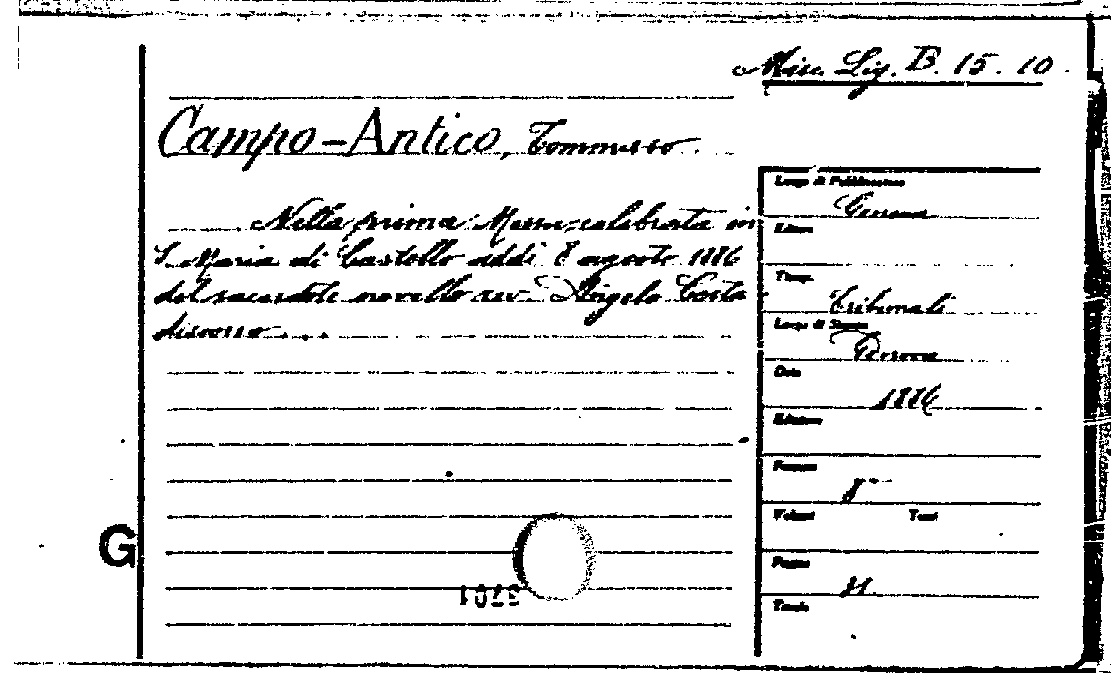 Misc. Lig. B. 15. 10
Campo-Antico, Tommaso.
Nella prima Messa celebrata in
S. Maria di Castello addì 8 agosto 1886
del sacerdote novello rev. Angelo Costa
discorso . . .
Luogo di Pubblicazione
Genova
Editore
Tipogr.
Tribunali
Luogo di Stampa
Genova
Data
1886
Edizione
Formato
8°
Volumi Tomi
Pagine
Tavole
G